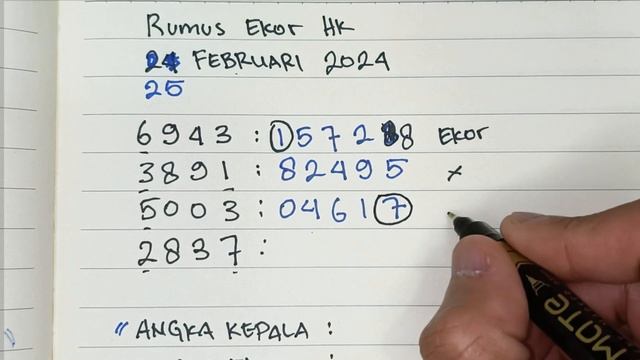 Rumus Ekor HK
24 FEBRUARI 2024
25
6943 : 157288 Ekor
3891 : 82495 x
5003 : 04617
2837 :
" ANGKA KEPALA :
MOTE